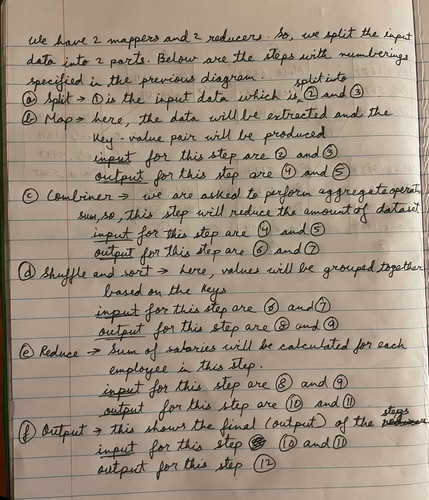 We have 2 mappers and 2 reducers. So, we split the input
data into 2 parts. Below are the steps with numberings
specified in the previous diagram.
ⓐ Split → ① is the input data which is split into ② and ③
ⓑ Map → here, the data will be extracted and the
key-value pair will be produced
input for this step are ② and ③
output for this step are ④ and ⑤
ⓒ Combiner → we are asked to perform aggregate operat
sum, so, this step will reduce the amount of dataset
input for this step are ④ and ⑤
output for this step are ⑥ and ⑦
ⓓ Shuffle and sort → here, values will be grouped together
based on the keys
input for this step are ⑥ and ⑦
output for this step are ⑧ and ⑨
ⓔ Reduce → Sum of salaries will be calculated for each
employee in this step.
input for this step are ⑧ and ⑨
output for this step are ⑩ and ⑪
ⓕ Output → this shows the final (output) of the steps
input for this step ⑩ and ⑪
output for this step ⑫